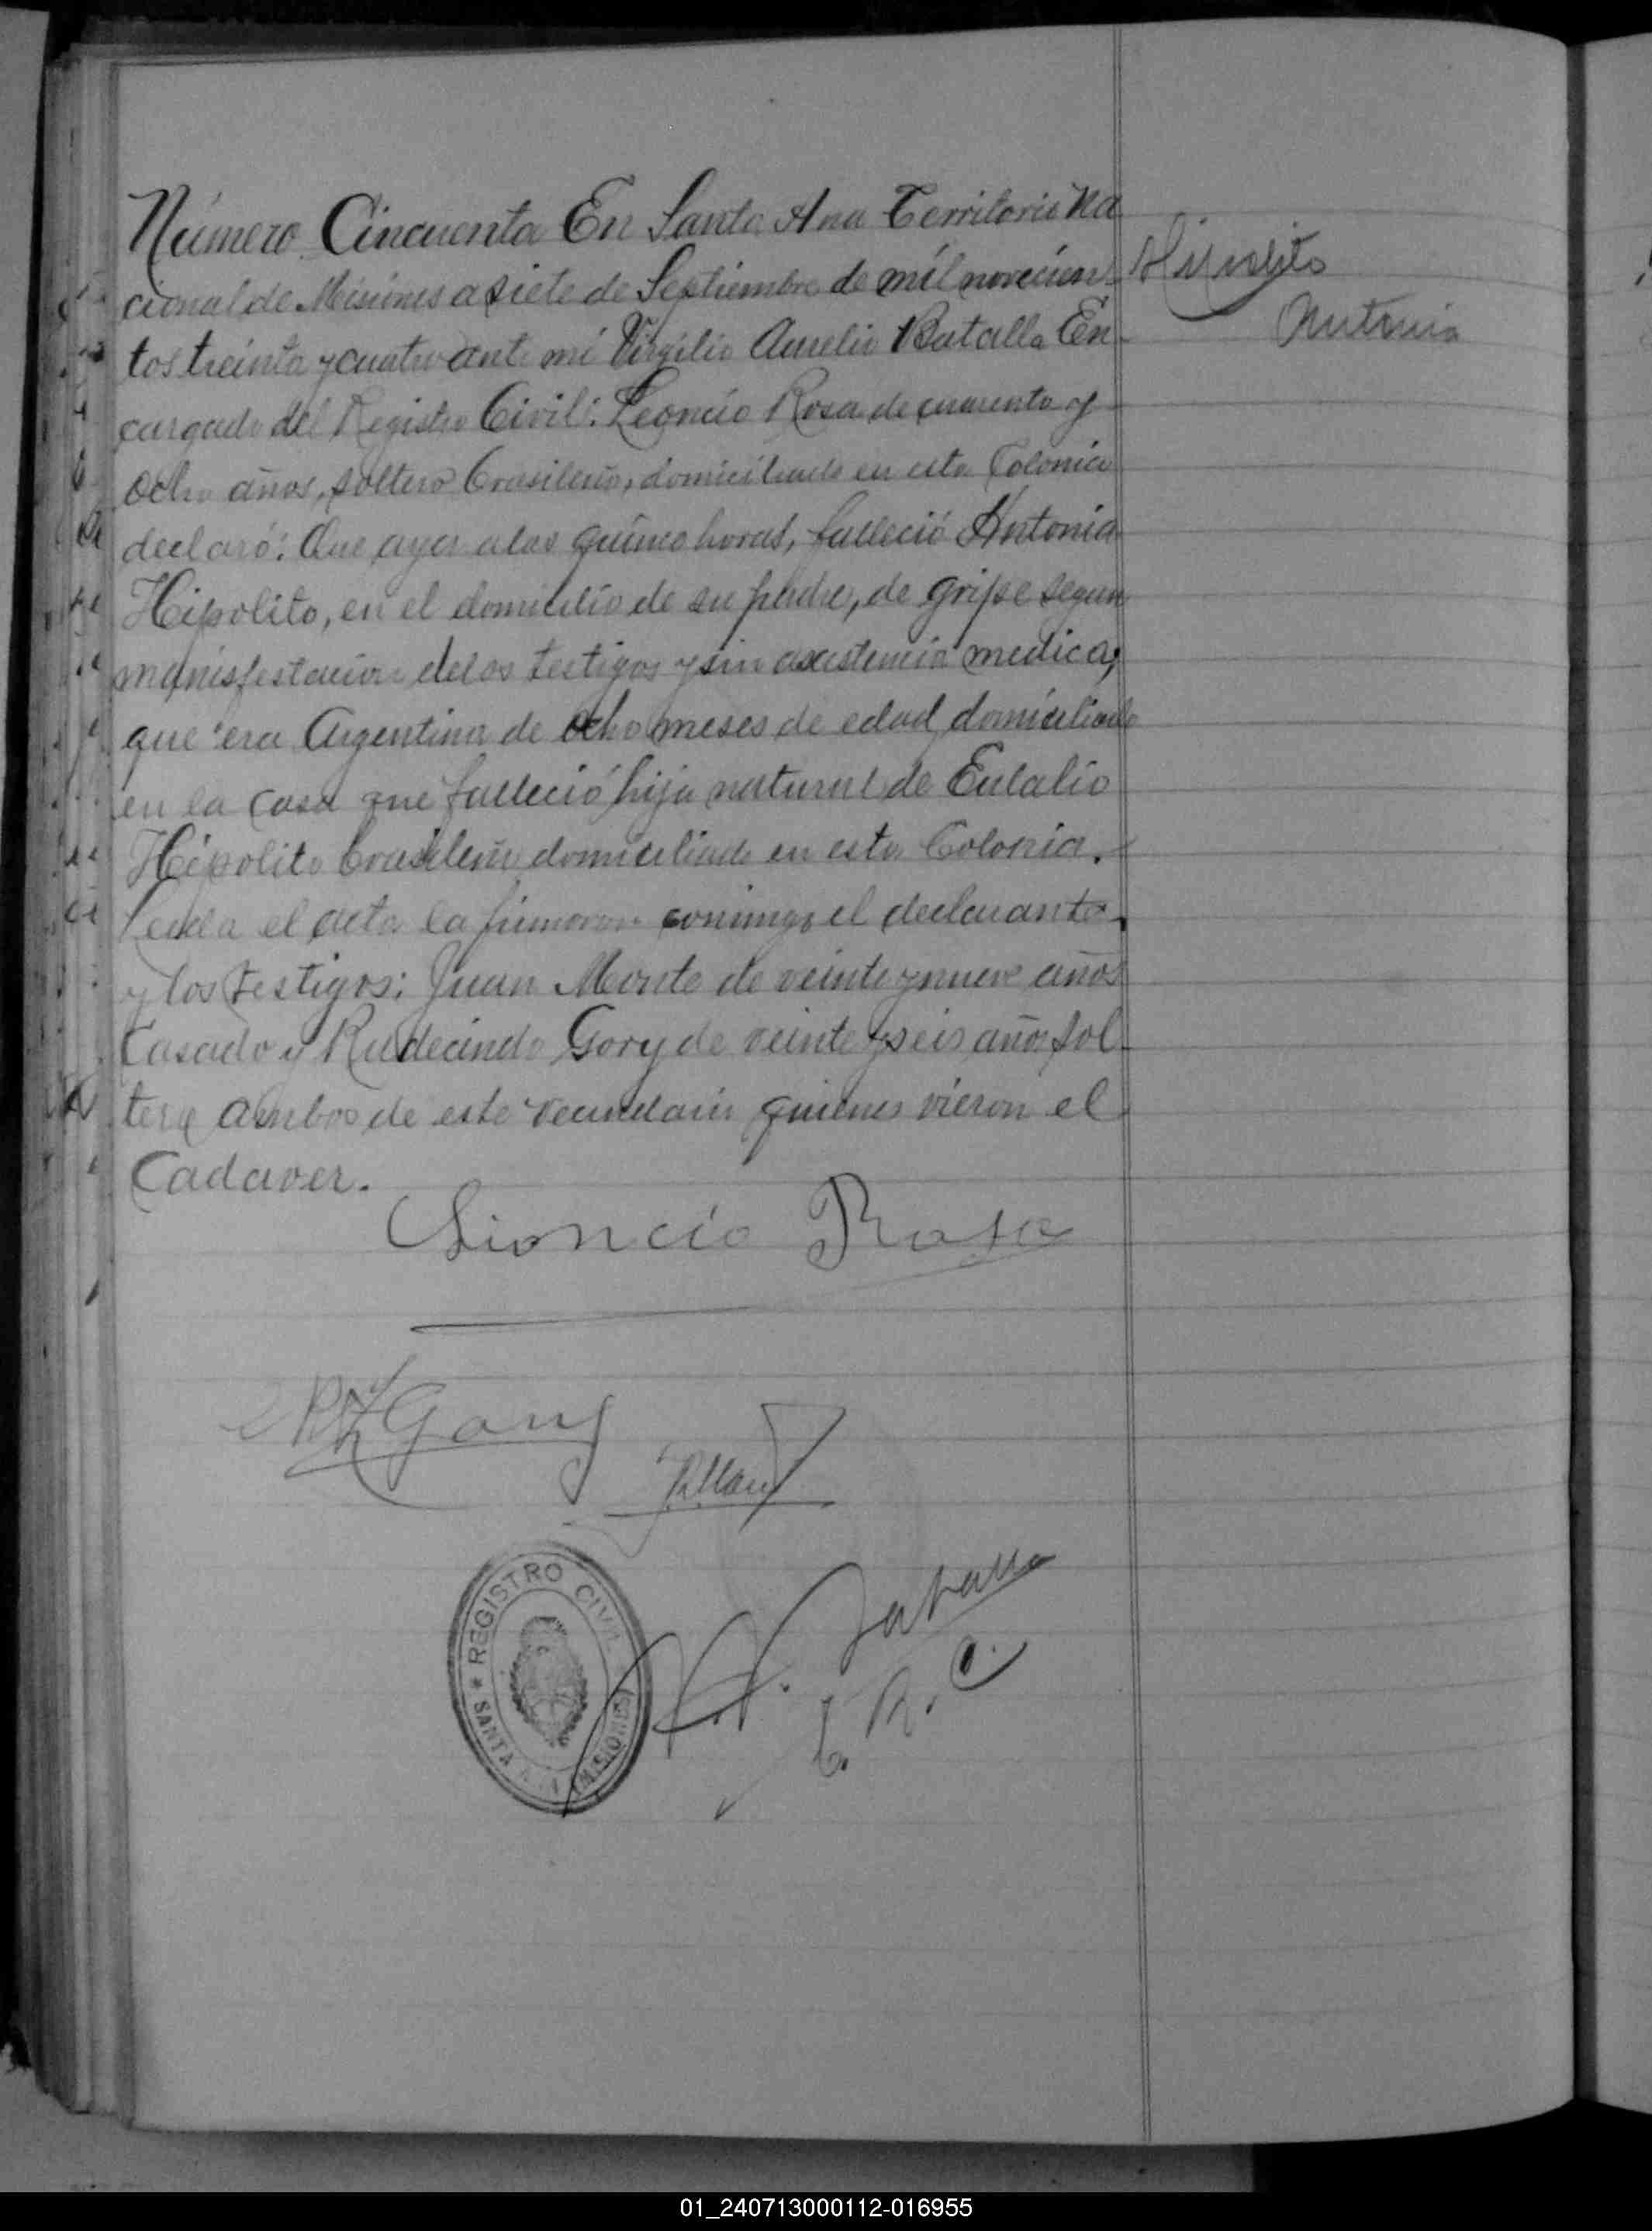 Número Cincuenta En Santa Ana Territorio Na
cional de Misiones a siete de Septiembre de mil novecien-
tos treinta y cuatro ante mi Virgilio Aurelio Batalla En-
cargado del Registro Civil: Leoncio Rosa de cuarenta y
ocho años, soltero brasileño, domiciliado en esta Colonia
declaró: Que ayer a las quince horas, falleció Antonia
Hipolito, en el domicilio de su padre, de gripe segun
manisfestacion de los testigos y sin asistencia medica;
que era Argentina de ocho meses de edad domiciliada
en la casa que falleció hija natural de Eulalio
Hipolito brasileño domiciliado en esta Colonia.
Leida el acta la firmaron conmigo el declarante
y los testigos: Juan Monte de veinte y nueve años
Casado y Rudecindo Gory de veinte y seis años sol-
tero ambos de este vecindario quienes vieron el
Cadaver.
Hipolito
Antonia
Lioncio Rosa
Gory
V. A. Batalla
E. R. C.
* REGISTRO CIVIL
SANTA ANA (MISIONES)
01_240713000112-016955